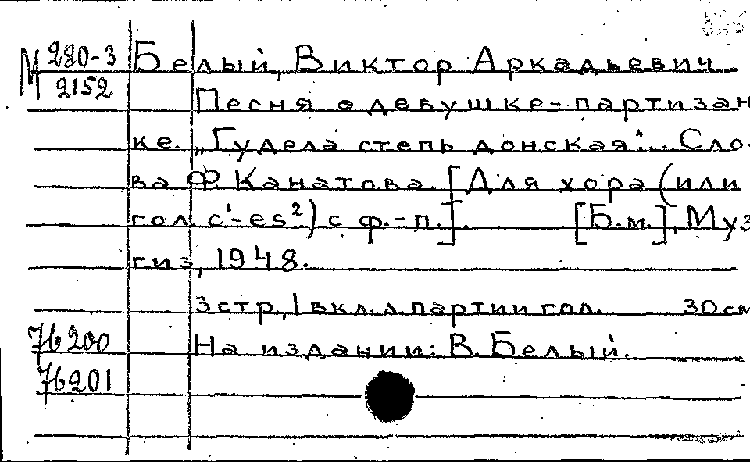 М 280-3
2152
Белый, Виктор Аркадьевич
Песня о девушке-партизан
ке. „Гудела степь донская“... Сло-
ва Ф Канатова. [Для хора (или
гол. c¹-es²) с ф.-п.]. [Б.м.], Муз
гиз, 1948.
3 стр, 1 вкл. л. партии гол. 30 см
76200
На издании: В. Белый.
76201